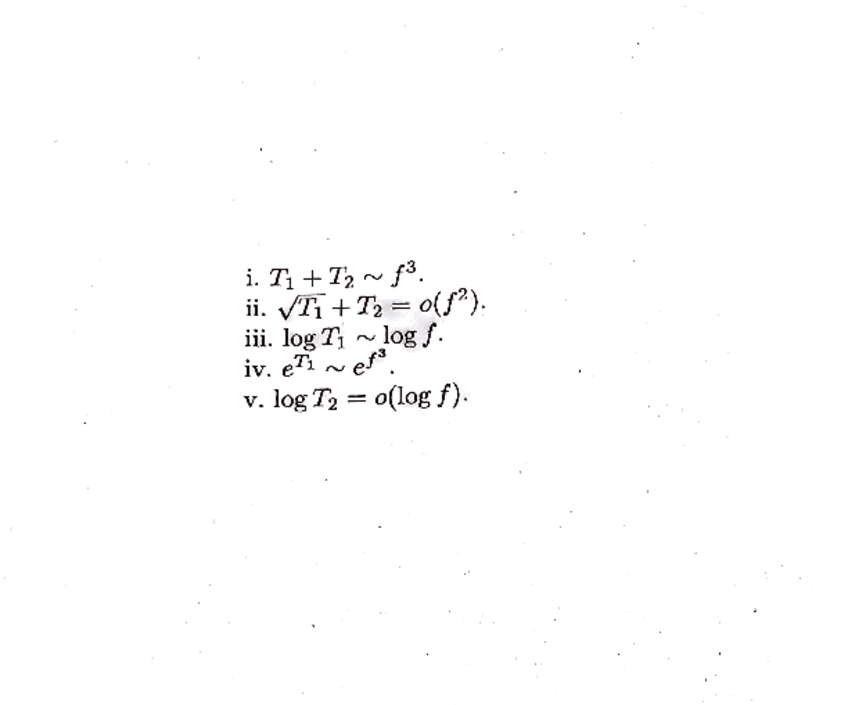 i. T₁ + T₂ ∼ f³.
ii. √T₁ + T₂ = o(f²).
iii. log T₁ ∼ log f.
iv. e^{T₁} ∼ e^{f³}.
v. log T₂ = o(log f).